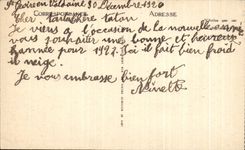 St Geoire en Valdaine 30 Décembre 1926
CORRESPONDANCE
ADRESSE
Cher tonton
Je viens a l'occasion de la nouvelle année
vous souhaiter une bonne et heureuse
année pour 1927. Ici il fait bien froid
il neige.
Je vous embrasse bien fort